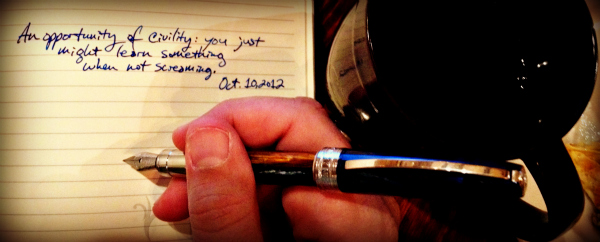 An opportunity of civility: you just
might learn something
when not screaming.
Oct. 10, 2012